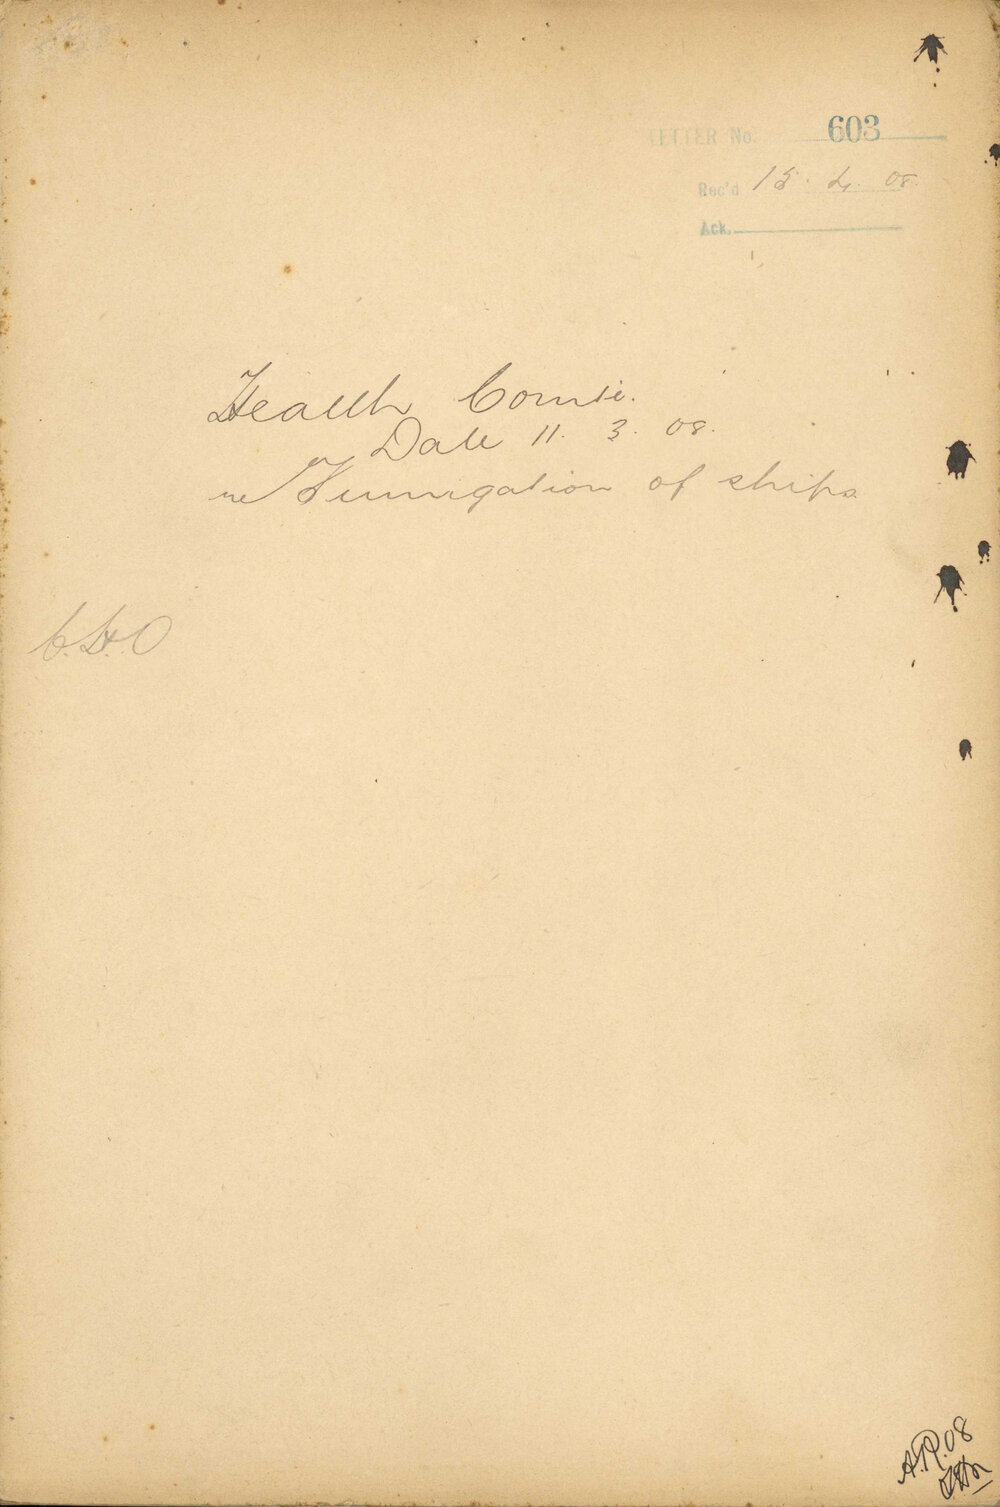 LETTER No. 603
Rec'd 15. 4. 08.
Ack.
Health Comte.
Date 11. 3. 08.
re Fumigation of ships
C.H.O
A.R.08